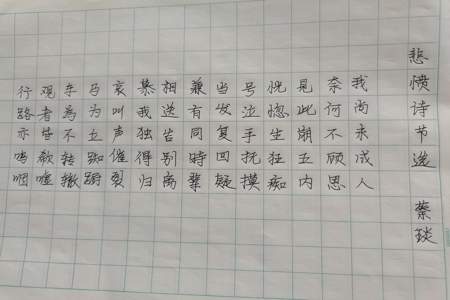 悲愤诗节选 蔡琰
我尚未成人
奈何不顾思
见此崩五内
恍惚生狂痴
号泣手抚摸
当发复回疑
兼有同时辈
相送告别离
慕我独得归
哀叫声催裂
马为立踟蹰
车为不转辙
观者皆歔嘘
行路亦呜咽